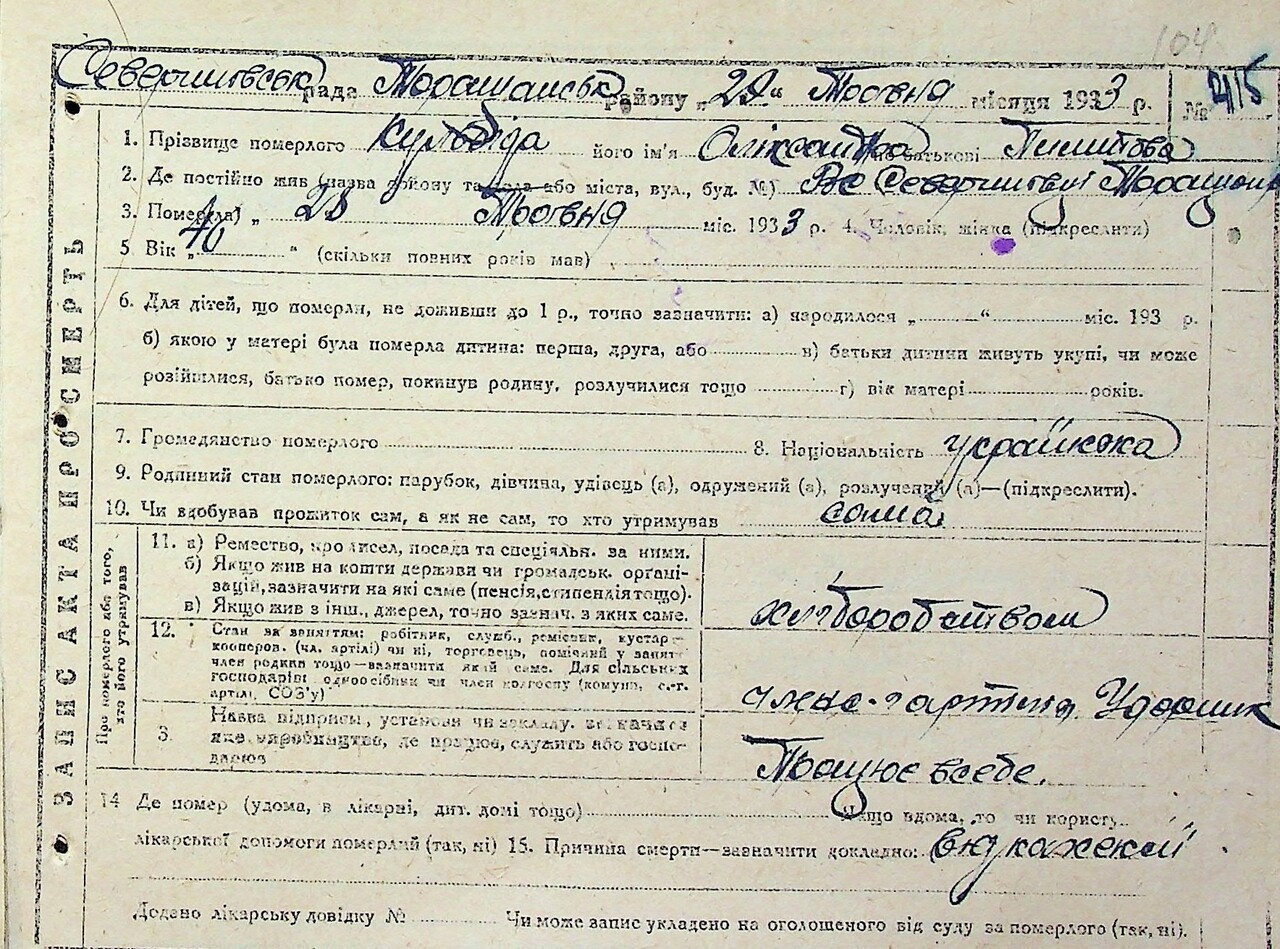 104
Северинівськ рада Таращанськ району „ 23 “ Травня місяця 1933 р. № 415
1. Прізвище померлого Кульбіда його ім'я Олександра по батькові
2. Де постійно жив (назва району та села або міста, вул., буд. №)
3. Помер(ла) „ Травня міс. 1933 р. 4. Чоловік, жінка (підкреслити)
5. Вік „ 40 “ (скільки повних років мав)
6. Для дітей, що померли, не доживши до 1 р., точно зазначити: а) народилося „ “ міс. 193 р.
б) якою у матері була померла дитина: перша, друга, або в) батьки дитини живуть укупі, чи може
розійшлися, батько помер, покинув родину, розлучилися тощо г) вік матері років.
7. Громадянство померлого 8. Національність українка
9. Родинний стан померлого: парубок, дівчина, удівець (а), одружений (а), розлучений (а)—(підкреслити).
10. Чи здобував прожиток сам, а як не сам, то хто утримував сама
ЗАПИС АКТА ПРО СМЕРТЬ
Про померлого або того, хто його утримував
11. а) Ремество, промисел, посада та спеціяльн. за ними.
б) Якщо жив на кошти держави чи громадськ. орґані-
зацій, зазначити на які саме (пенсія, стипендія тощо).
в) Якщо жив з інш. джерел, точно зазнач. з яких саме.
хліборобством
12. Стан за заняттям: робітник, служб., ремісник, кустар—
кооперов. (чл. артілі) чи ні, торговець, помічний у занятт
член родини тощо—зазначити який саме. Для сільських
господарів: одноосібник чи член колгоспу (комуни, с.-г.
артілі, СОЗ'у)
член артілі Ударник
3. Назва підприєм., установи чи закладу, зазначити
яке виробництво, де працює, служить або госпо-
дарює
Працює в себе.
14 Де помер (удома, в лікарні, дит. домі тощо) Якщо вдома, то чи користу..
лікарської допомоги померлий (так, ні) 15. Причина смерти—зазначити докладно:
Додано лікарську довідку № Чи може запис укладено на оголошеного від суду за померлого (так, ні).